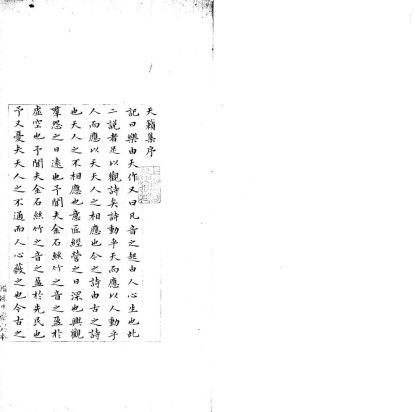 天籟集序
記曰樂由天作又曰凡音之起由人心生也此
二說者足以觀詩矣詩動乎天而應以人動乎
人而應以天天人之相應也今之詩由古之詩
也天人之不相應也意匠經營之日深也興觀
羣怨之日遠也予聞夫金石絲竹之音之盈於
虛空也予聞夫金石絲竹之音之盈於先民也
予又憂夫天人之不通而人心蔽之也今古之